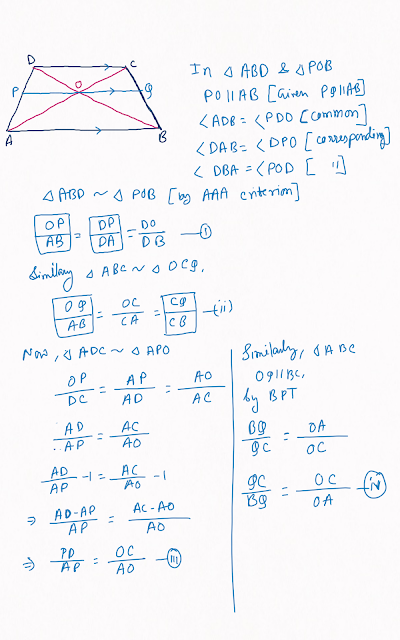 D
C
O
P
Q
A
B
In △ ABD & △ POB
PO || AB [Given PQ || AB]
∠ADB = ∠PDO [common]
∠DAB = ∠DPO [corresponding]
∠DBA = ∠POD [ 〃 ]
△ ABD ~ △ POB [by AAA criterion]
OP/AB = DP/DA = DO/DB —(i)
Similary △ ABC ~ △ OCQ,
OQ/AB = OC/CA = CQ/CB —(ii)
Now, △ ADC ~ △ APO
OP/DC = AP/AD = AO/AC
AD/AP = AC/AO
AD/AP - 1 = AC/AO - 1
⇒ AD-AP/AP = AC-AO/AO
⇒ PD/AP = OC/AO —(iii)
Similarly, △ ABC
OQ || BC,
by BPT
BQ/QC = OA/OC
QC/BQ = OC/OA —(iv)